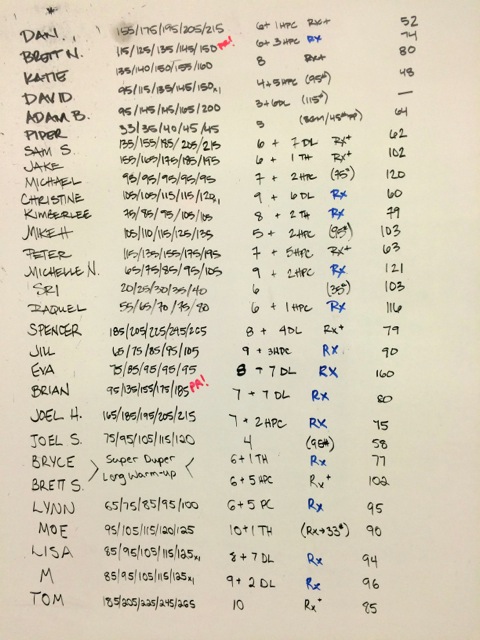 DAN. 155/175/195/205/215 6+1HPC Rx+ 52
BRETT N. 115/125/135/145/150 PR! 6+3HPC Rx 74
KATIE 135/140/150/155/160 8 Rx+ 80
DAVID 95/115/135/145/150x1 4+5HPC (95#) 48
ADAM B. 95/145/145/165/200 3+6DL (115#) —
PIPER 33/35/40/45/45 5 64
SAM S. 135/155/185/205/215 6 + 7DL Rx+ 62
JAKE 155/165/175/185/195 6 + 1TH Rx+ 102
MICHAEL 95/95/95/95/95 7 + 2HPC (75#) 120
CHRISTINE 105/105/115/115/120x1 9 + 6DL Rx 60
KIMBERLEE 75/85/95/105/105 8 + 2TH Rx 79
MIKE H 105/110/115/125/135 5 + 2HPC (95#) 103
PETER 115/135/155/175/195 7 + 5HPC Rx+ 63
MICHELLE N. 65/75/85/95/105 9 + 2HPC Rx 121
SRI 20/25/30/35/40 6 (35#) 103
RAQUEL 55/65/70/75/80 6 + 1HPC Rx 116
SPENCER 185/205/225/245/265 8 + 4DL Rx+ 79
JILL 65/75/85/95/105 9 + 3HPC Rx 90
EVA 75/85/95/95/95 8 + 7DL Rx 160
BRIAN 95/135/155/175/185 PR! 7 + 7DL Rx 80
JOEL H. 165/185/195/205/215 7 + 2HPC Rx 75
JOEL S. 75/95/105/115/120 4 (95#) 58
BRYCE Super Duper 6+1TH Rx 77
BRETT S. Long Warm-up 6+5HPC Rx+ 102
LYNN 65/75/85/95/100 6+5PC Rx 95
MOE 95/105/115/120/125 10+1TH (Rx→33#) 90
LISA 85/95/105/115/125x1 8+7DL Rx 94
M 85/95/105/115/125x1 9+2DL Rx 96
TOM 185/205/225/245/265 10 Rx+ 85